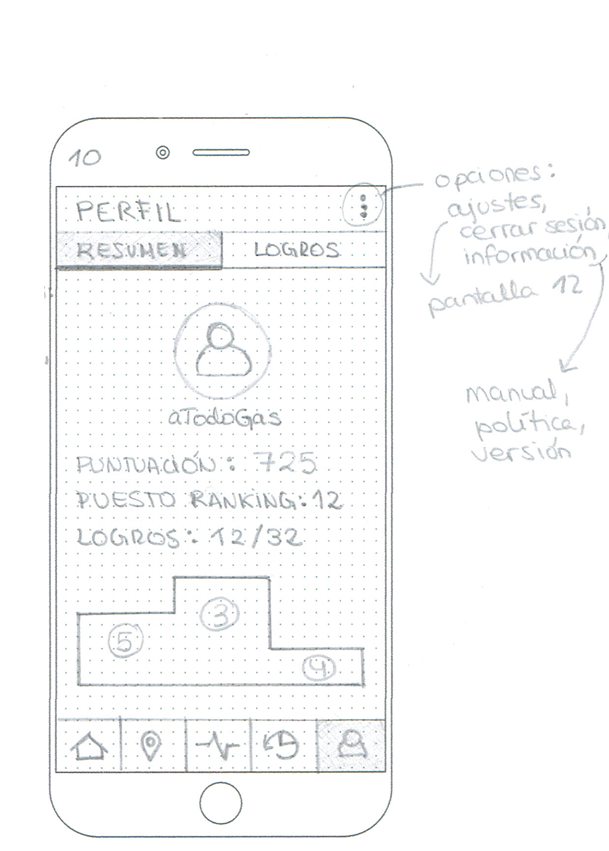 10
PERFIL
RESUMEN
LOGROS
aTodoGas
PUNTUACIÓN: 725
PUESTO RANKING: 12
LOGROS: 12/32
5
3
4
opciones:
ajustes,
cerrar sesión,
información,
pantalla 12
manual,
política,
versión